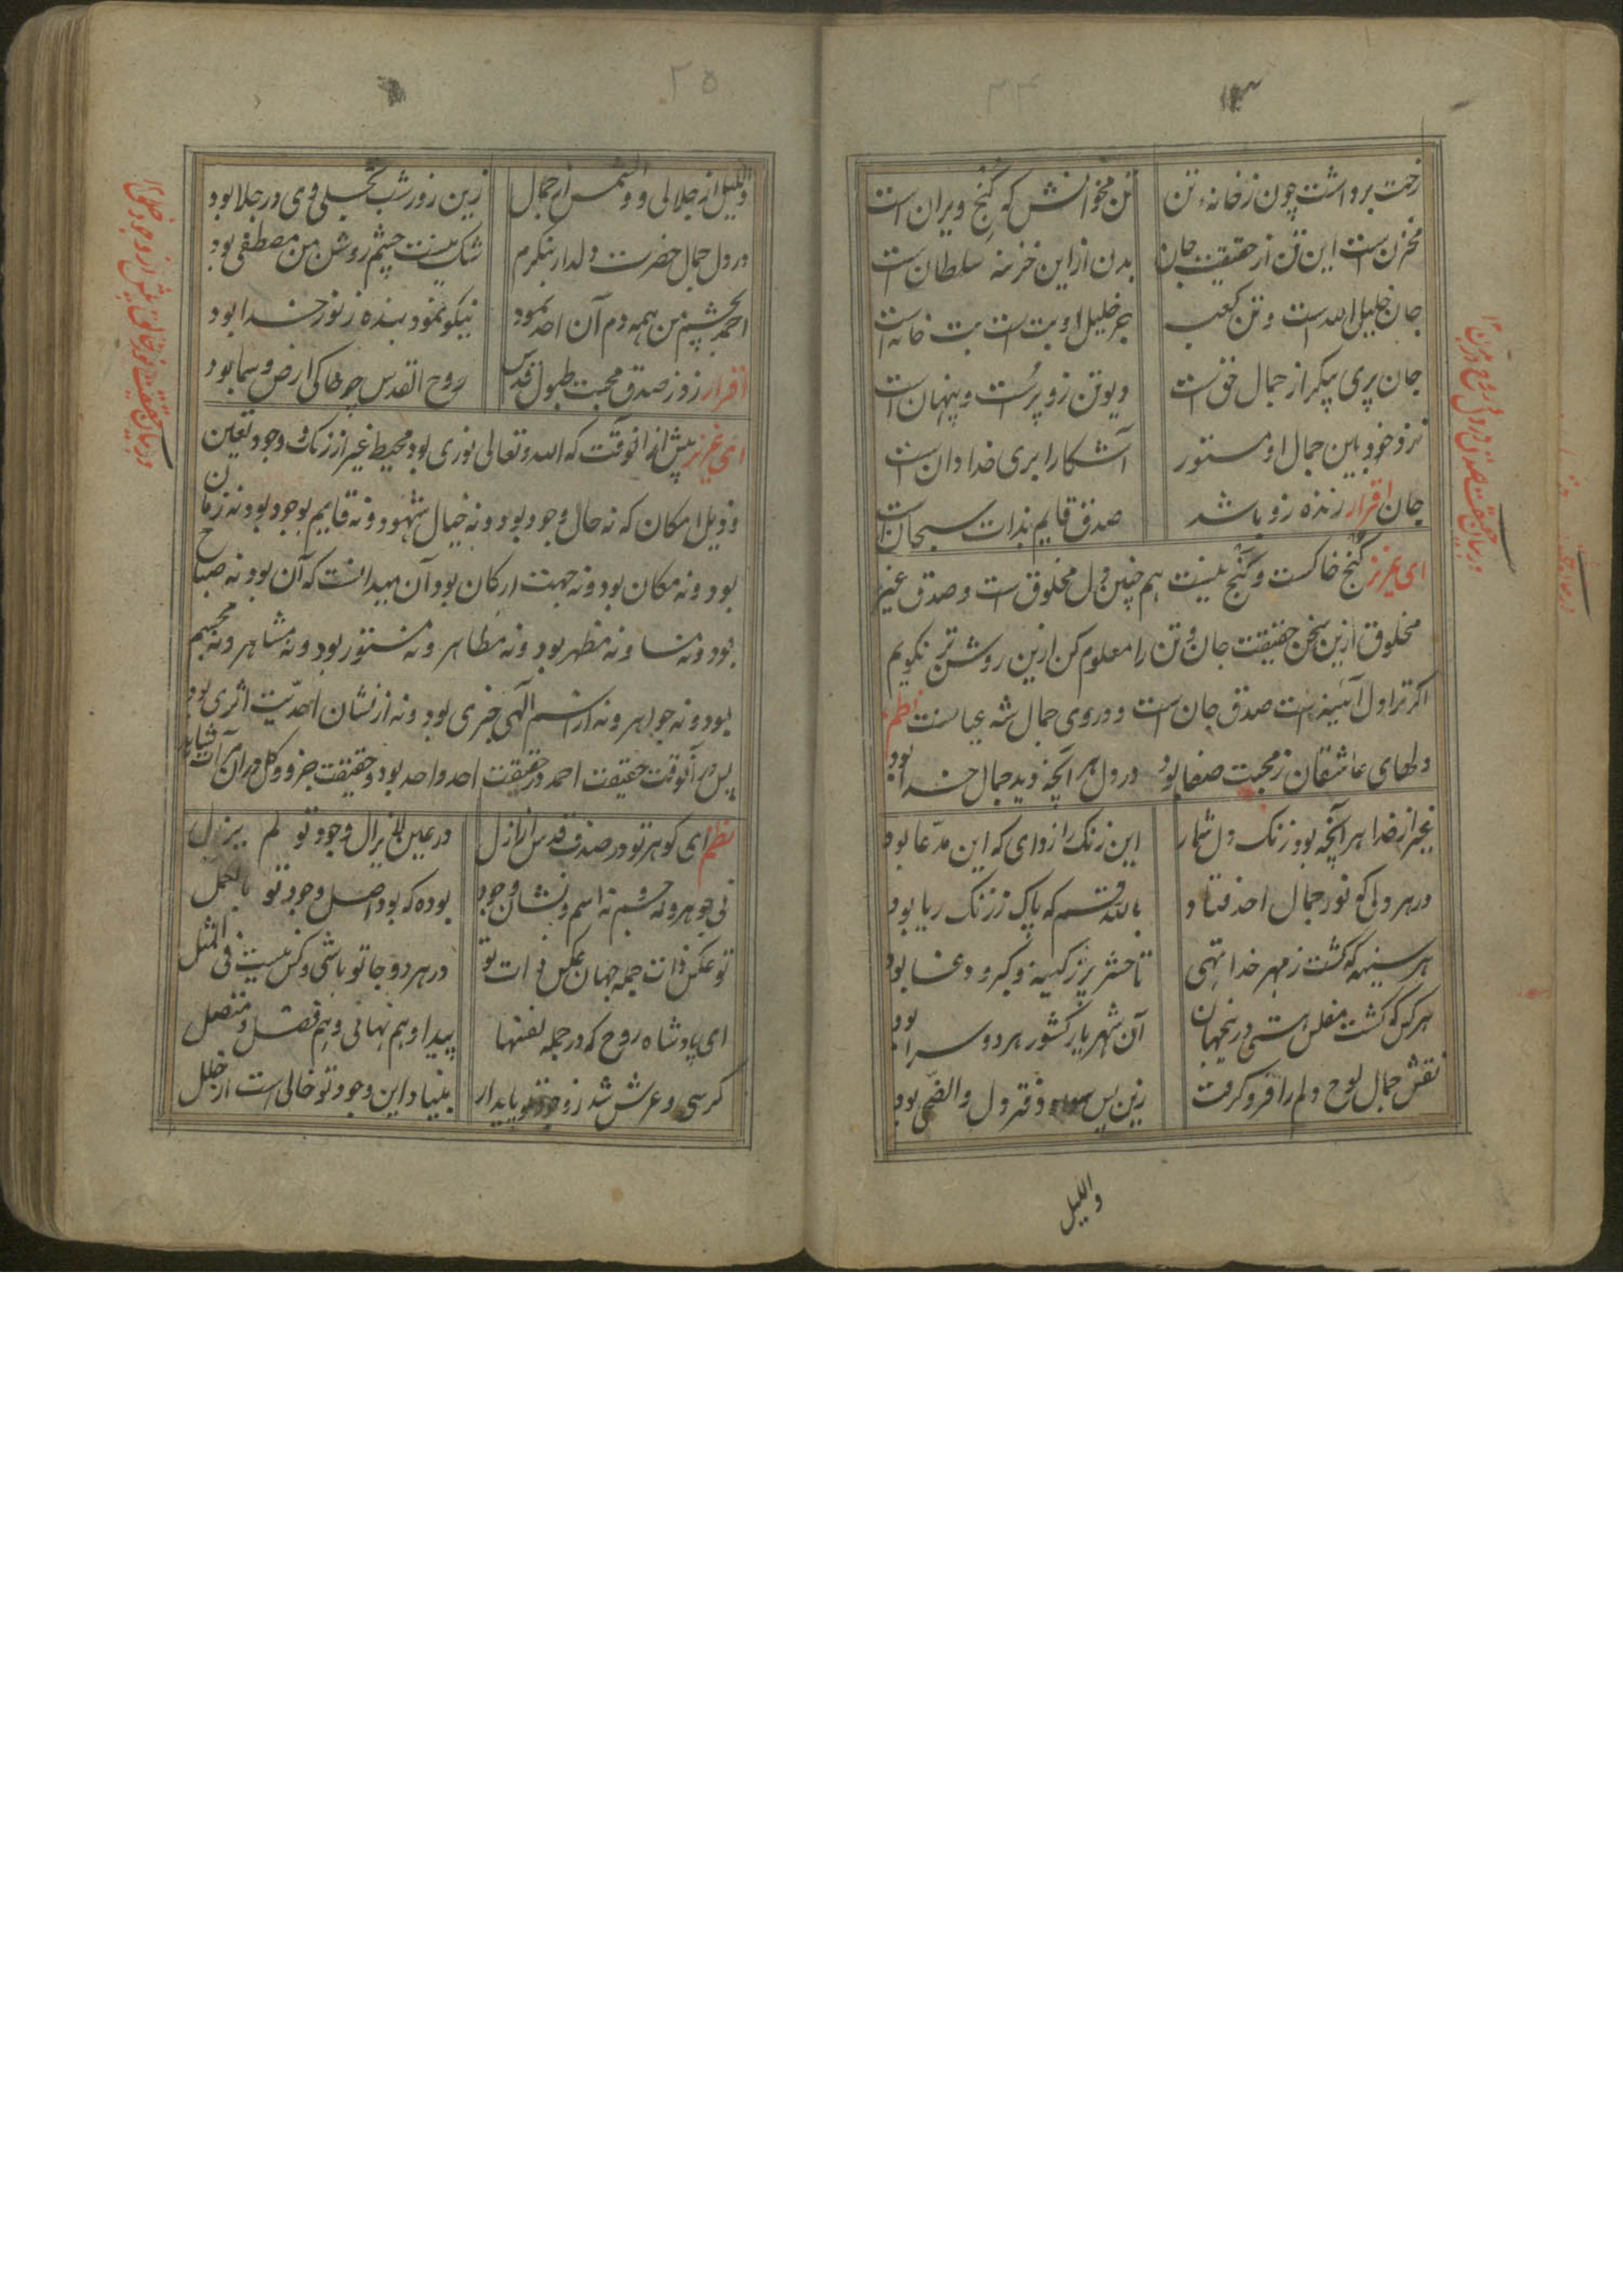 ۲۴
رخت برداشت چون ز خانهٔ تن تن مخوانش که گنج ویران است
مخزن است این تن از حقیقت جان بدن از این خزینه سلطان است
جان خلیل الله است و تن کعبه جز خلیل او بت است بت خانه است
جان پری پیکر از جمال حق است دیو تن زو پرست و پنهان است
نزد خود بین جمال او مستور آشکارا بری خدا دان است
جان اقرار زنده زو باشد صدق قایم بذات سبحان است
ای عزیز گنج خاکست و گنج نیست هم چنین دل مخلوق است و صدق غیر
مخلوق ازین سخن حقیقت جان و تن را معلوم کن ازین روشن تر نکویم
اکر ترا دل آئینه است صدق جان است و در وی جمال شه عیانست نظم
دلهای عاشقان ز محبت صفا بود در دل هر آنچه دید جمال خدا بود
غیر از خدا هر آنچه بود زنک دل شمار این زنک را زدای که این مدعا بود
در هر دلی کو نور جمال احد فتاد بالله قسم که پاک ز زنک ریا بود
هر سینه که کشت ز مهر خدا تهی تا حشر پر ز کینه و کبر و دغا بود
هر کس که کشت مفلس هستی درینجهان آن شهریار کشور هر دو سرا بود
نقش جمال لوح دلم را فرو کرفت زین پس سواد دفتر دل والضحی بود
واللیل
۲۵
واللیل از جلالی و والشمس از جمال زین روز شب تجلی وی در جلا بود
در دل جمال حضرت دلدار بنکرم شک نیست چشم روشن من مصطفی بود
احمد بچشم من همه دم آن احد نمود نیکو نمود بنده ز نور خدا بود
اقرار زد ز صدق محبت طبول قدس روح القدس چو خاکی ارض و سما بود
ای عزیز پیش از انوقت که الله و تعالی نوری بود محیط غیر از رنک و وجود تعین
و ذیل امکان که نه حال وجود بود و نه خیال شهود و نه قایم بوجود بود نه زمان
بود و نه مکان بود و نه جهت ارکان بود آن میدانست که آن بود و نه صباح
بود و نه مسا و نه مظهر بود و نه مظاهر و نه مستور بود و نه مشاهر و نه مجسم
بود و نه جواهر و نه از اسم الهی خبری بود و نه از نشان احدیت اثری بود
پس در آنوقت حقیقت احمد در حقیقت احد واحد بود و حقیقت جزو و کل در آن
نظم ای کوهر تو در صدف قدس از ازل در عین لایزال وجود تو لم یزل
نی جوهر و نه جسم نه اسم و نشان وجود بوده که بود اصل وجود تو باعمل
تو عکس ذات جمله جهان عکس ذات تو در هر دو جا تو باشی و کس نیست فی المثل
ای پادشاه روح که در جمله نفسها پیدا و هم نهانی و هم فصل و متصل
کرسی و عرش شد ز وجود تو پایدار بنیاد این وجود تو خالی است از خلل